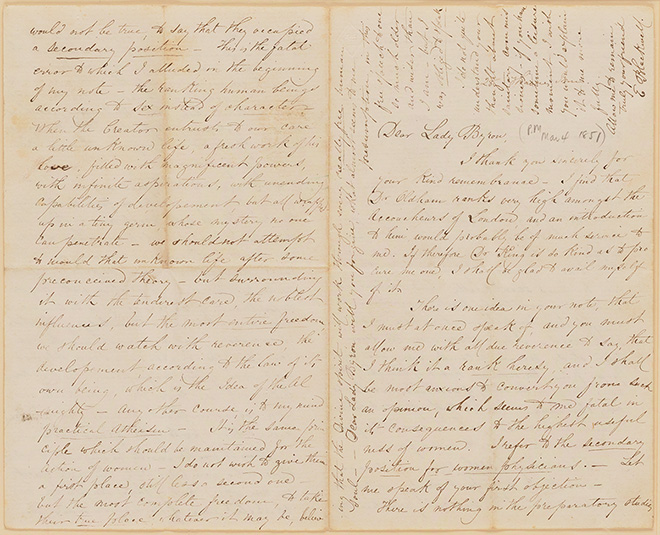 Dear Lady Byron,
(PM
Mar 4 1851)
I thank you sincerely for
your kind remembrance - I find that
Dr Oldham ranks very high amongst the
Accoucheurs of London and an introduction
to him would probably be of much service to
me. If therefore Dr King is so kind as to pro
cure me one, I shall be glad to avail myself
of it.
There is one idea in your note, that
I must at once speak of, and you must
allow me with all due reverence to say, that
I think it a rank heresy, and I shall
be most anxious to convert you from such
an opinion, which seems to me fatal in
its consequences to the highest useful
ness of women. I refer to the secondary
position for women physicians. - Let
me speak of your first objection -
There is nothing in the preparatory studies
would not be true, to say that they occupied
a secondary position - this is the fatal
error to which I alluded in the beginning
of my note - the ranking human beings
according to sex instead of character -
When the Creator entrusts to our care
a little unknown life, a fresh work of his
love, filled with magnificent powers,
with infinite aspirations, with unending
capability of developement but all wrapt
up in a tiny germ whose mystery no one
can penetrate - we should not attempt
to mould that unknown life after some
preconceived theory - but surrounding
it with the tenderest care, the noblest
influences, but the most entire freedom,
we should watch with reverence, the
development according to the law of its
own being, which is the Idea of the Al
mighty - Any other course, is to my mind
practical Atheism - It is the same prin
ciple which should be maintained for the
action of women - I do not wish to give them
a first place, still less a second one -
but the most complete freedom, to take
their true place whatever it may be,
ing that the Divine spirit will work through every really free human
soul - Dear Lady Byron will you forgive
this
so much older
and wiser than
I am - but I
was obliged to speak
I do not quite
understand your
thought about
being - if you have
sometime a leisure
moment, I wish
you would explain
it to me more
fully.
Allow me to remain
Truly your friend
E. Blackwell